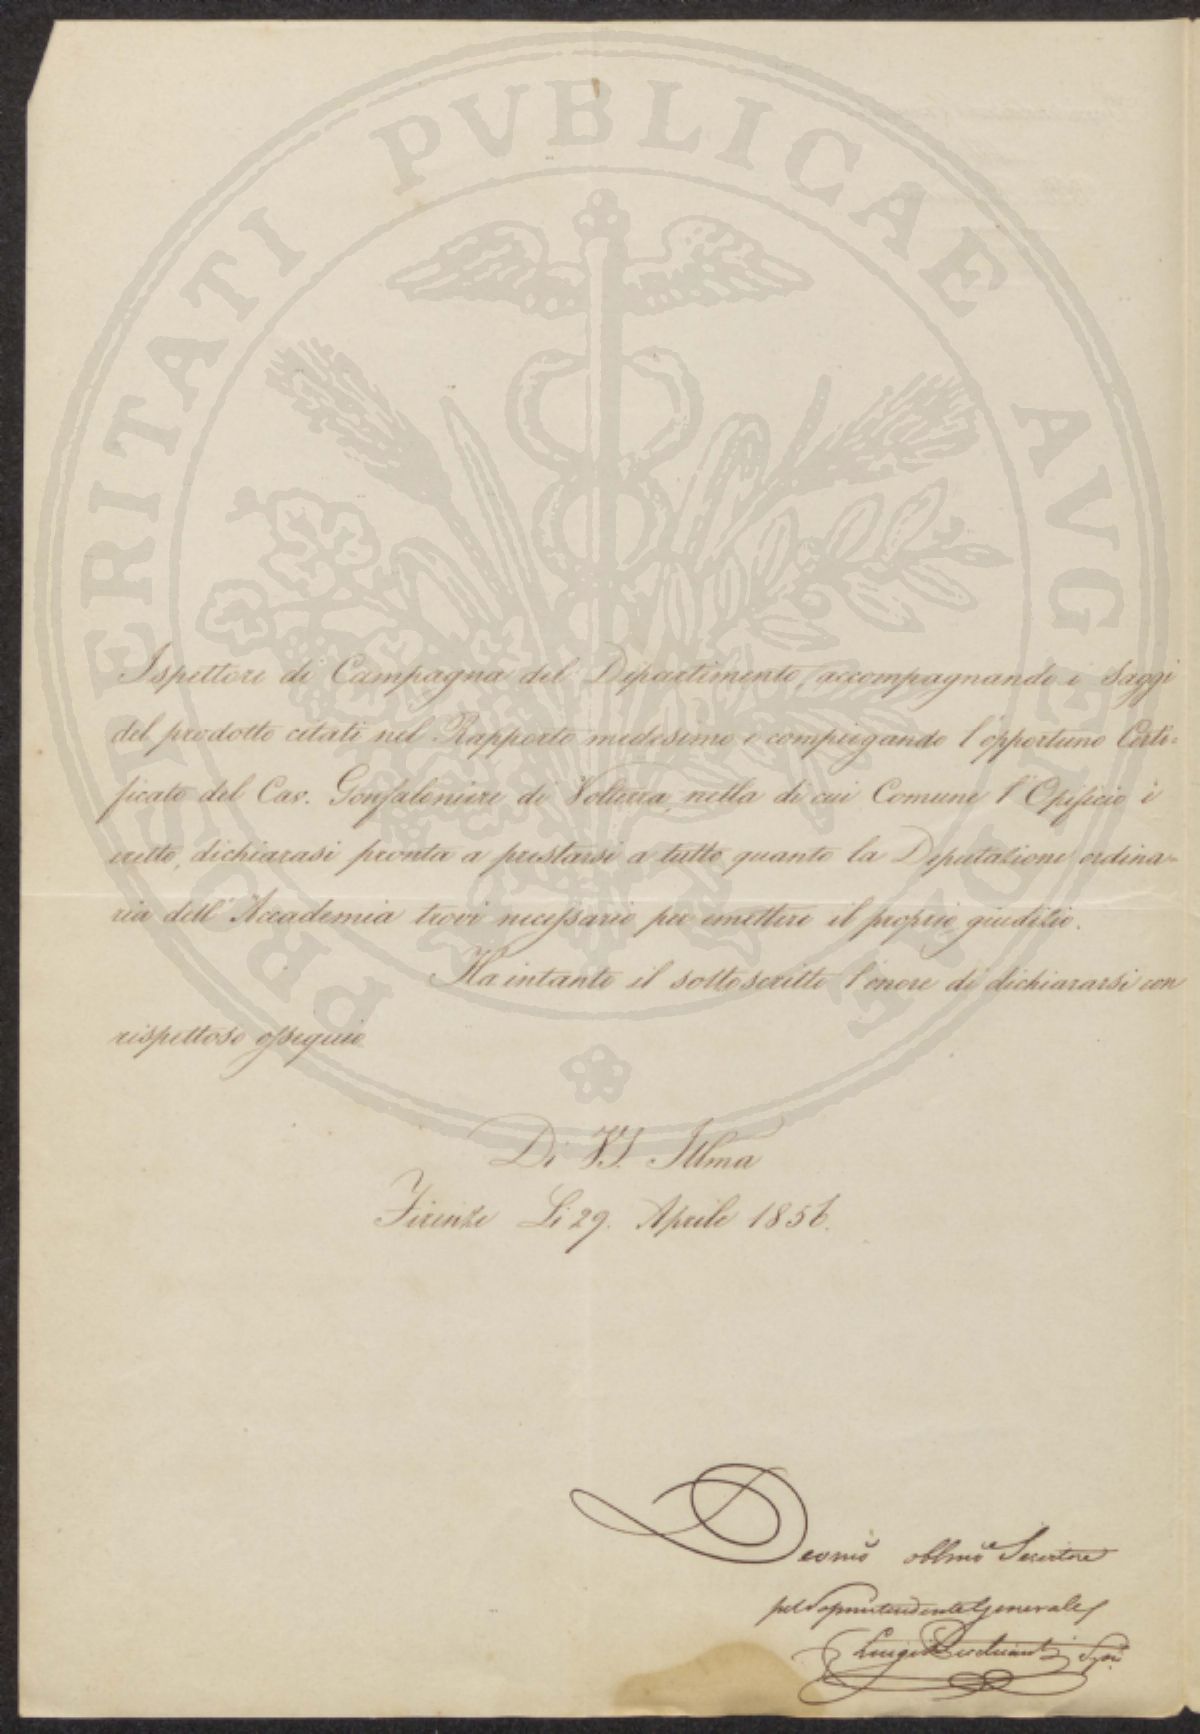 PROSPERITATI PVBLICAE AVGENDAE
Ispettore di Campagna del Dipartimento, accompagnando i Saggi
del prodotto citati nel Rapporto medesimo e compiegando l'opportuno Certi=
ficato del Cav. Gonfaloniere di Volterra, nella di cui Comune l'Opificio è
eretto, dichiarasi pronta a prestarsi a tutto quanto la Deputazione ordina=
ria dell'Accademia trovi necessario per emettere il proprio giudizio.
Ha intanto il sottoscritto l'onore di dichiararsi con
rispettoso ossequio
Di V.S. Illma
Firenze Li 29. Aprile 1856.
Devmo obblmo Servitore
pel Soprintendente Generale
Luigi